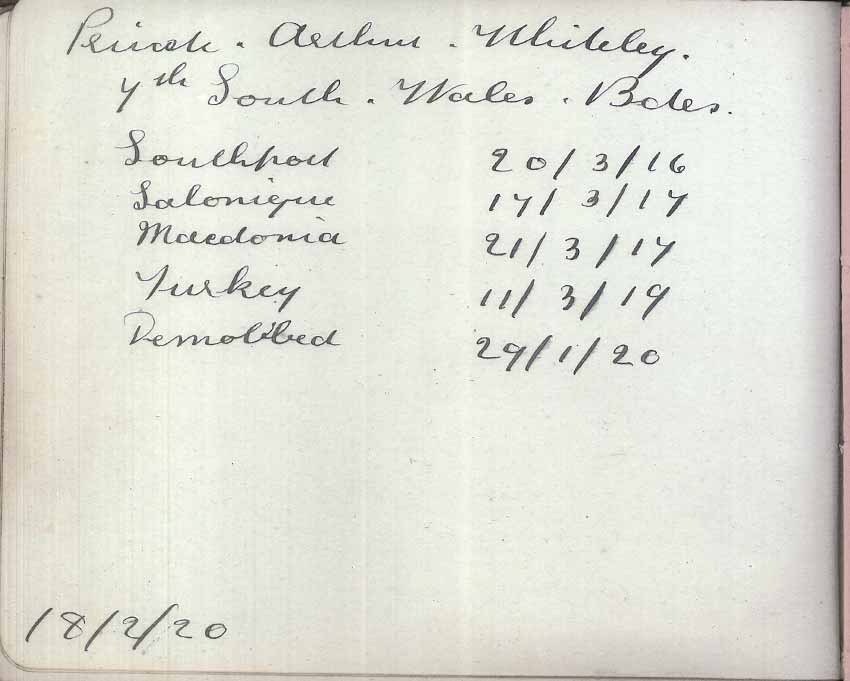 Private . Arthur . Whiteley.
7th South . Wales . Bdes.
Southport 20/3/16
Salonique 17/3/17
Macedonia 21/3/17
Turkey 11/3/19
Demobbed 29/1/20
18/2/20